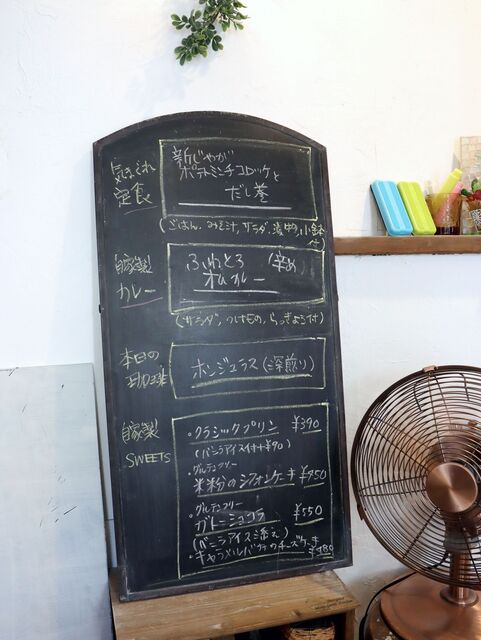 気まぐれ
定食
新じゃが
ポテトミンチコロッケと
だし巻
(ごはん、みそ汁、サラダ、漬物、小鉢
付)
自家製
カレー
ふわとろ (辛め)
オムカレー
(サラダ、つけもの、らっきょう付)
本日の
珈琲
ホンジュラス(深煎り)
自家製
SWEETS
・クラシックプリン ¥390
(バニラアイス付+¥90)
・グルテンフリー
米粉のシフォンケーキ ¥450
・グルテンフリー
ガトーショコラ ¥550
(バニラアイス添え)
・キャラメルバナナのチーズケーキ